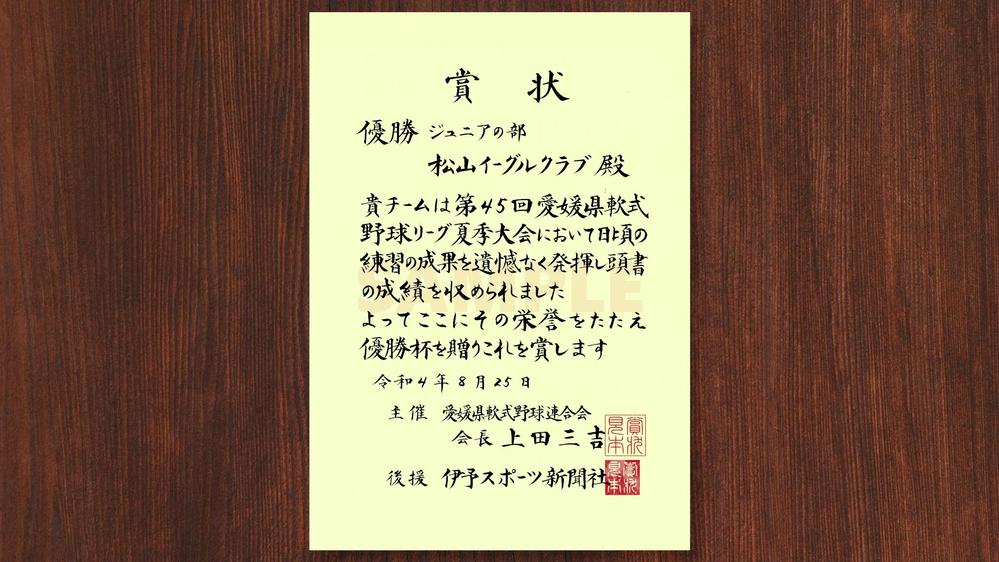 賞 状
優勝 ジュニアの部
松山イーグルクラブ 殿
貴チームは第45回愛媛県軟式
野球リーグ夏季大会において日頃の
練習の成果を遺憾なく発揮し頭書
の成績を収められました
よってここにその栄誉をたたえ
優勝杯を贈りこれを賞します
令和4年8月25日
主催 愛媛県軟式野球連合会
会長 上田三吉
賞状見本
後援 伊予スポーツ新聞社
賞状見本
SAMPLE